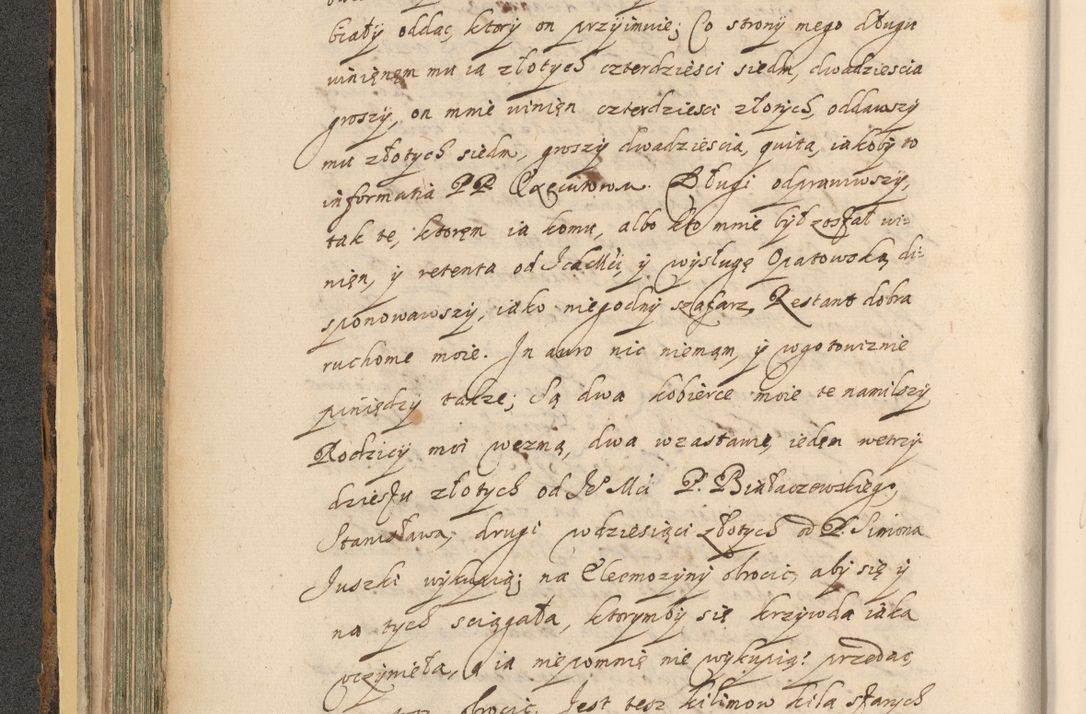 biały oddac, ktory on przyimuie; Co strony mego długu
winięnęm mu ia złotych czterdziesci siedm, dwadziescia
groszy, on mnie winięn czterdziesci złotych, oddawszy
mu złotych siedm, groszy dwadziescia, quita, iakoby to
informatia PP Executorow. Długi odprawiwszy,
tak te, ktorem ia komu, albo kto mnie był został wi-
nięn, y retenta od JchMci y wysługę Opatowską di-
sponowawszy, iako niegodny szafarz, Restant dobra
ruchome moie. In auro nic niemąm, y wgotowiznie
piniędzy także; Są dwa kobierce moie te namilszy
Rodzicy moi wezmą, dwa wzastawie, iedęn wetrzy-
dziestu złotych od JeMci P. Białaczewskiego,
Stanisława, drugi wdziesiąci złotych od P. Simona
Juszki wykupią; na Eleemozyny obrocic, aby się y
na tych sciągała, ktorymby się krzywda iaka
uczyniła, a ia niepomnię nie wykupią? przedac,
obrocic. Jest tesz kilimow kila starych